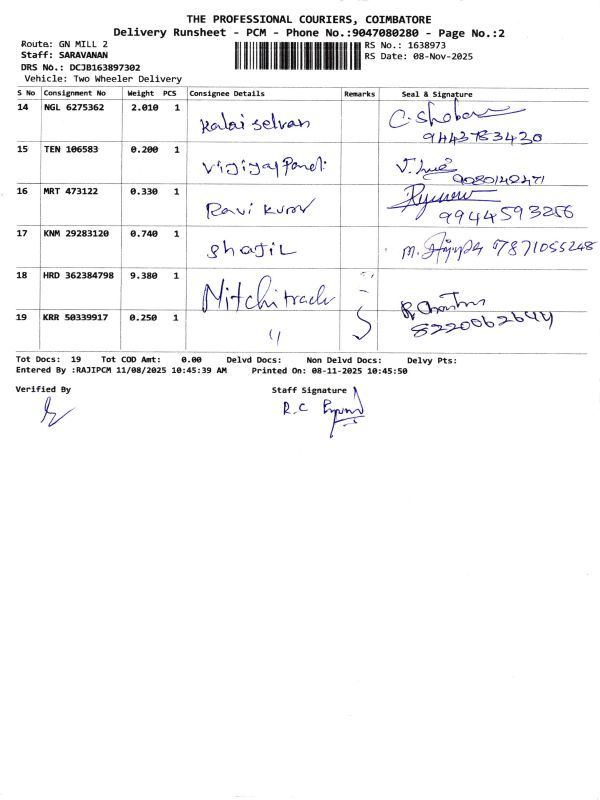 THE PROFESSIONAL COURIERS, COIMBATORE
Delivery Runsheet - PCM - Phone No.:9047080280 - Page No.:2
Route: GN MILL 2
RS No.: 1638973
Staff: SARAVANAN
RS Date: 08-Nov-2025
DRS No.: DCJB163897302
Vehicle: Two Wheeler Delivery
S No Consignment No Weight PCS Consignee Details Remarks Seal & Signature
14 NGL 6275362 2.010 1 Kalai Selvan C. Shoba
9443783430
15 TEN 106583 0.200 1
9080149471
16 MRT 473122 0.330 1 Ravi Kumar
9944593256
17 KNM 29283120 0.740 1 Shajil 7871055248
18 HRD 362384798 9.380 1 Mitchitrach
19 KRR 50339917 0.250 1 " 8220062644
Tot Docs: 19 Tot COD Amt: 0.00 Delvd Docs: Non Delvd Docs: Delvy Pts:
Entered By :RAJIPCM 11/08/2025 10:45:39 AM Printed On: 08-11-2025 10:45:50
Verified By Staff Signature
R.C